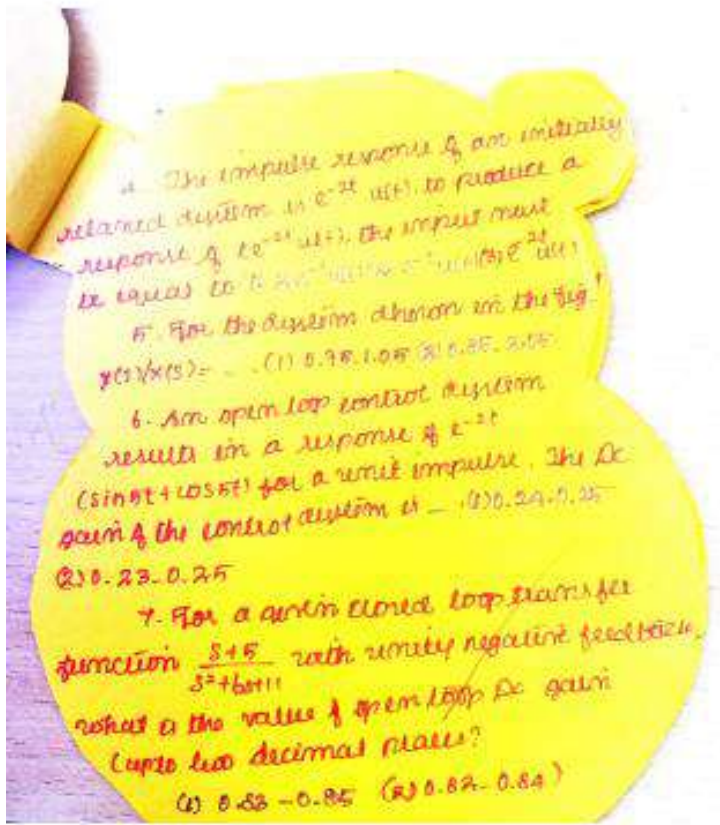 The impulse response of an initially
relaxed system is e⁻²ᵗ u(t). to produce a
response of te⁻²ᵗ u(t), the input must
be equal to
5. For the system shown in the fig.
y(s)/x(s)= - . (1) 0.95.1.05 (2)
6. An open loop control system
results in a response of e⁻²ᵗ
(sin5t+cos5t) for a unit impulse. The Dc
gain of the control system is - . 0.24-0.25
(2) 0.23-0.25
7. For a given closed loop transfer
function s+5/s²+6s+11 with unity negative feedback,
what is the value of open loop Dc gain
(upto two decimal places?
(1) 0.83-0.85 (2) 0.82-0.84)